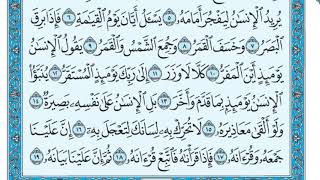 يُرِيدُ ٱلۡإِنسَٰنُ لِيَفۡجُرَ أَمَامَهُۥ ٥ يَسۡـَٔلُ أَيَّانَ يَوۡمُ ٱلۡقِيَٰمَةِ ٦ فَإِذَا بَرِقَ
ٱلۡبَصَرُ ٧ وَخَسَفَ ٱلۡقَمَرُ ٨ وَجُمِعَ ٱلشَّمۡسُ وَٱلۡقَمَرُ ٩ يَقُولُ ٱلۡإِنسَٰنُ
يَوۡمَئِذٍ أَيۡنَ ٱلۡمَفَرُّ ١٠ كَلَّا لَا وَزَرَ ١١ إِلَىٰ رَبِّكَ يَوۡمَئِذٍ ٱلۡمُسۡتَقَرُّ ١٢ يُنَبَّؤُاْ
ٱلۡإِنسَٰنُ يَوۡمَئِذِۭ بِمَا قَدَّمَ وَأَخَّرَ ١٣ بَلِ ٱلۡإِنسَٰنُ عَلَىٰ نَفۡسِهِۦ بَصِيرَةٞ ١٤
وَلَوۡ أَلۡقَىٰ مَعَاذِيرَهُۥ ١٥ لَا تُحَرِّكۡ بِهِۦ لِسَانَكَ لِتَعۡجَلَ بِهِۦٓ ١٦ إِنَّ عَلَيۡنَا
جَمۡعَهُۥ وَقُرۡءَانَهُۥ ١٧ فَإِذَا قَرَأۡنَٰهُ فَٱتَّبِعۡ قُرۡءَانَهُۥ ١٨ ثُمَّ إِنَّ عَلَيۡنَا بَيَانَهُۥ ١٩